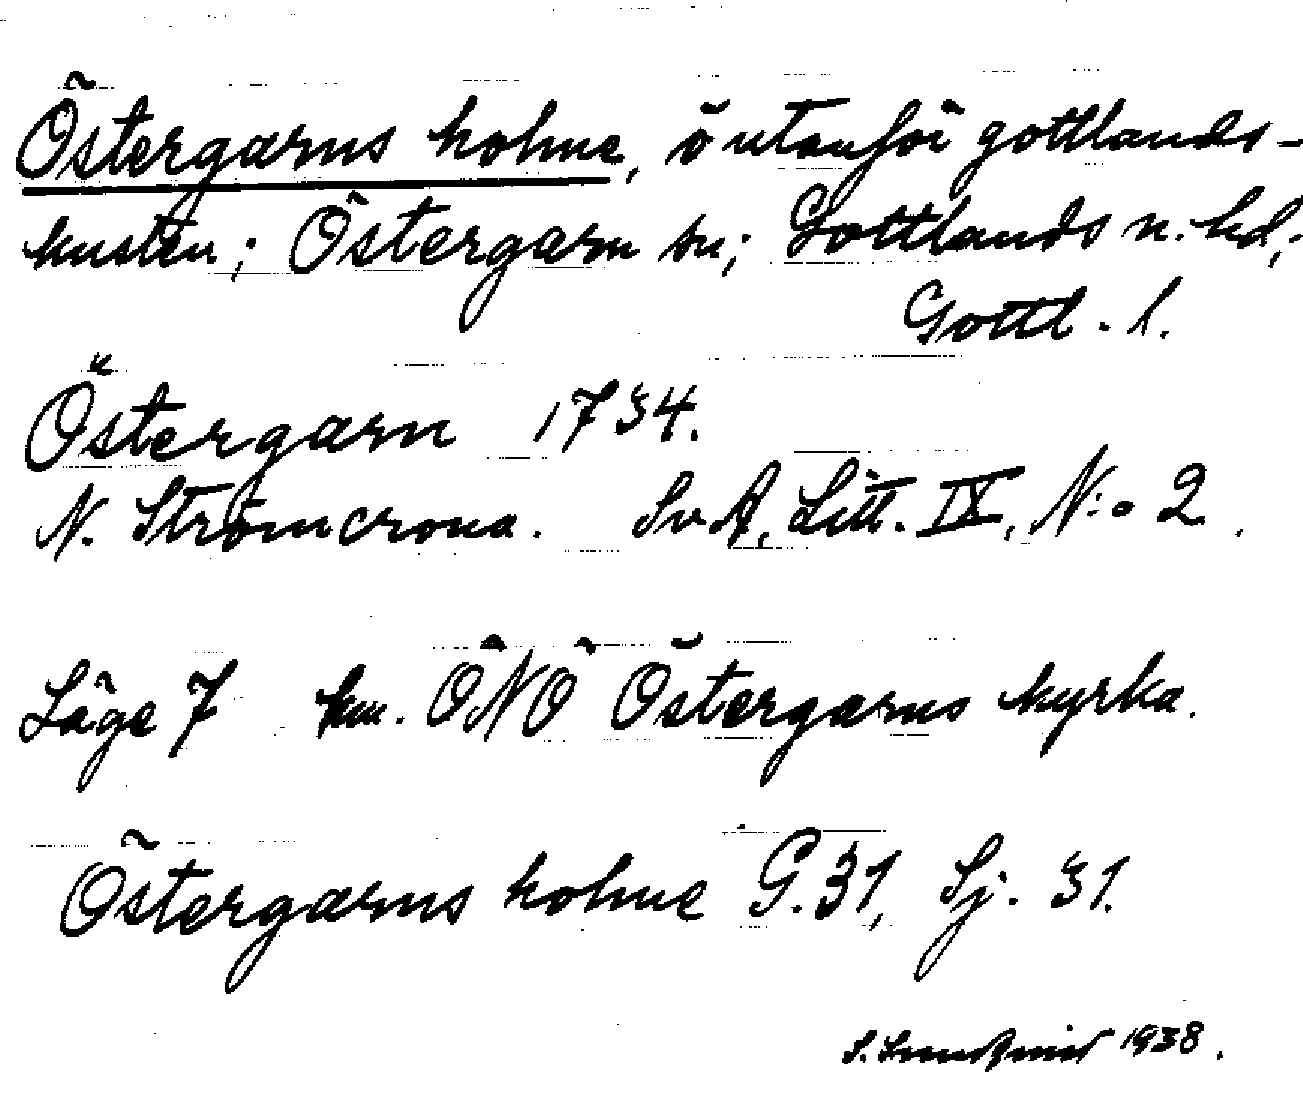 Östergarns holme, ö utanför gottlands-
kusten; Östergarn sn; Gottlands n. hd;
Gottl. l.
Östergarn 1734.
N. Strömcrona. SvA, Litt. IX, N:o 2.
Läge 7 km. ÖNÖ Östergarns kyrka.
Östergarns holme G. 31, Sj. 31.
S. Lundqvist 1938.